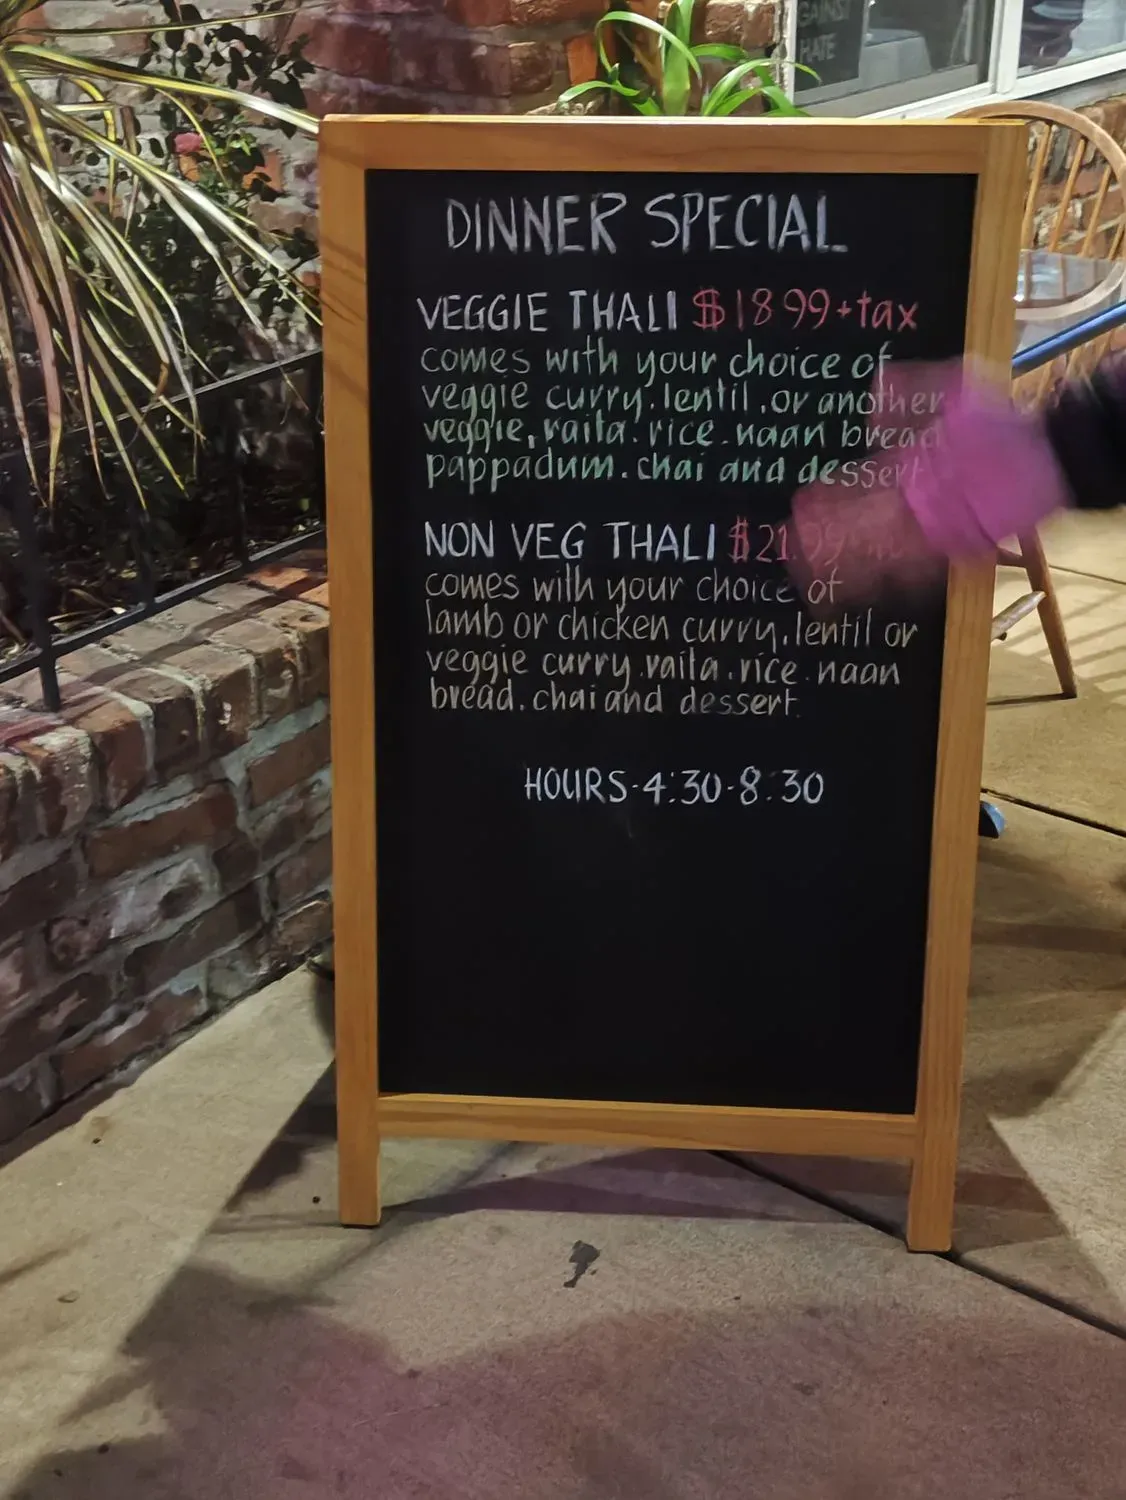 GAINST
HATE
DINNER SPECIAL
VEGGIE THALI $18.99+tax
comes with your choice of
veggie curry.lentil.or another
veggie, raita. rice. naan bread
pappadum. chai and dessert
NON VEG THALI $21.99
comes with your choice of
lamb or chicken curry.lentil or
veggie curry.raita.rice.naan
bread. chai and dessert.
HOURS-4:30-8:30